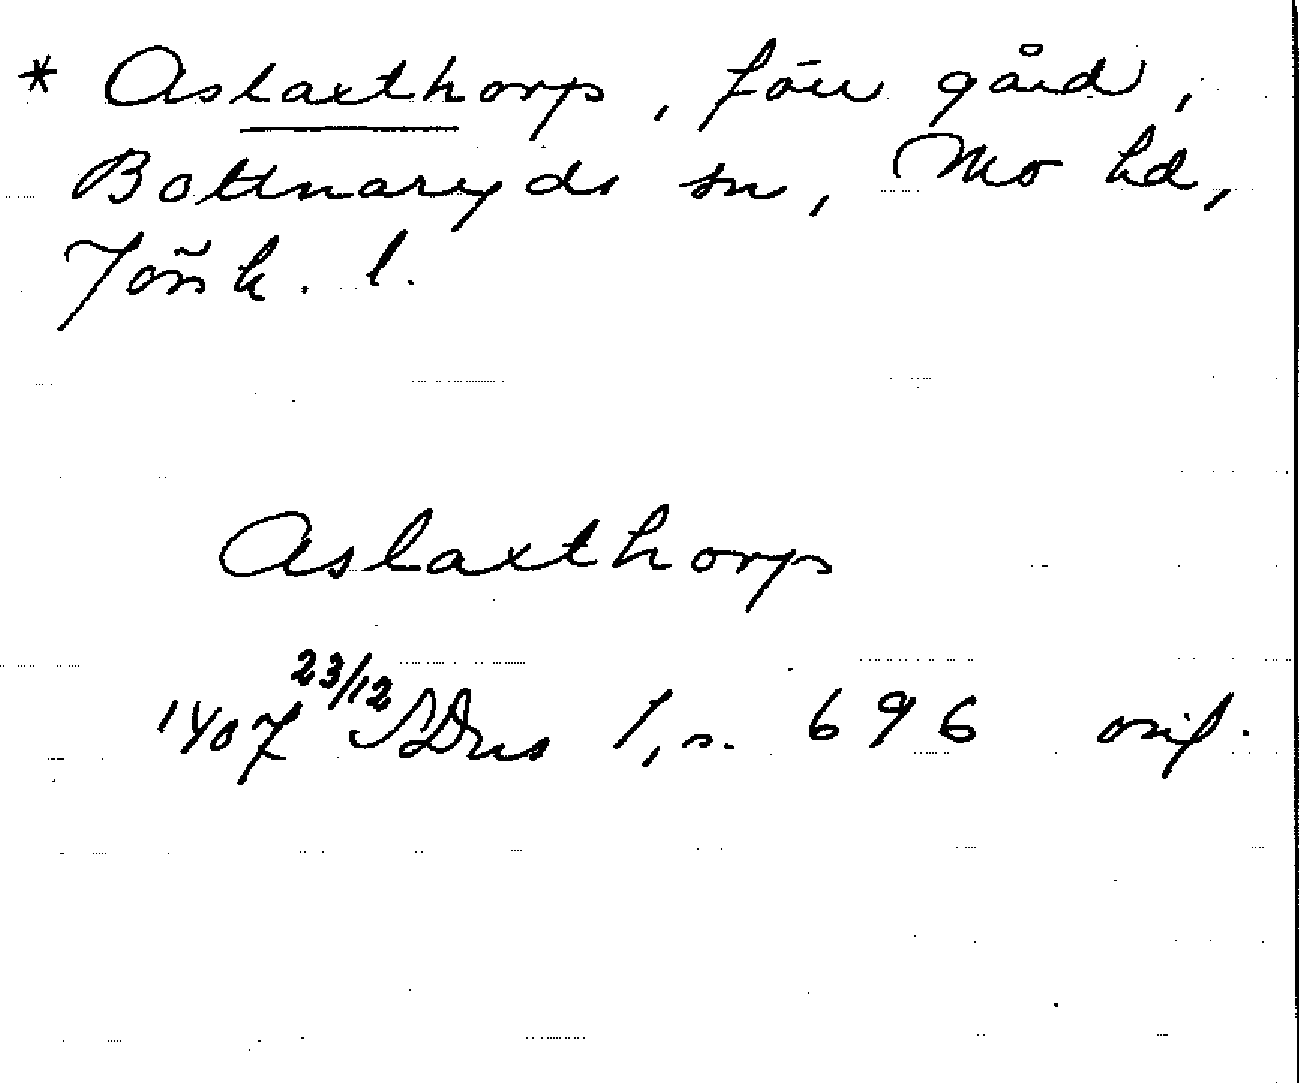 * Aslaxthorp, förr gård,
Bottnaryds sn, Mo hd,
Jönk. l.
Aslaxthorp
1407 23/12 SDns 1, s. 696 orig.